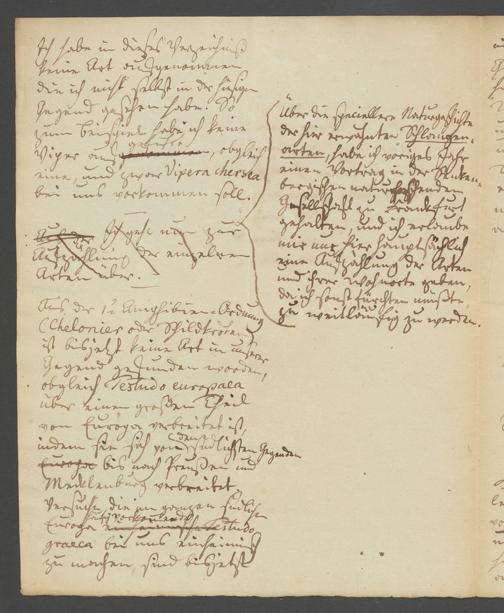 Ich habe in dieses Verzeichniß
keine Art aufgenommen
die ich nicht selbst in der hiesigen
Gegend gesehen habe. So
zum Beispiel habe ich keine
Viper auf , obgleich
eine, und zwar Vipera chersea
bei uns vorkommen soll.
Ich gehe nun zur
Aufzählung der einzelnen
Arten über.
Aus der 1. Amphibien-Ordnung
(Chelonier oder Schildkröten)
ist bis jetzt keine Art in unserer
Gegend gefunden worden,
obgleich Testudo europaea
über einen großen Theil
von Europa verbreitet ist,
indem sie sich von den südlichsten Gegenden
Europa bis nach Preußen und
Mecklenburg verbreitet.
Versuche, die im ganzen südlichen
Europa Testudo
graeca bei uns einheimisch
zu machen, sind bis jetzt
Über die speciellere Naturgeschichte
der hier erwähnten Schlangen-
arten, habe ich voriges Jahr
einen Vortrag in der Senken-
bergischen naturforschenden
Gesellschaft zu Frankfurt
gehalten, und ich erlaube
mir nur hier hauptsächlich
eine Aufzählung der Arten
und ihrer Wohnorte geben,
da ich sonst fürchten müßte,
zu weitläufig zu werden.